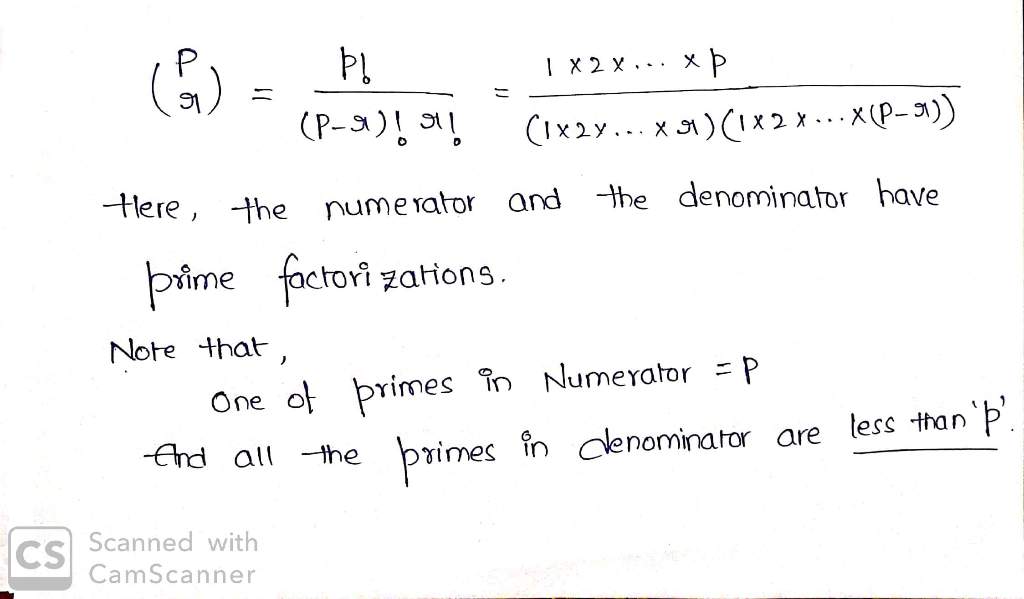 (P r) = p! / (P-r)! r! = 1 x 2 x ... x p / (1 x 2 x ... x r)(1 x 2 x ... x (P-r))
Here, the numerator and the denominator have
prime factorizations.
Note that,
One of primes in Numerator = P
And all the primes in denominator are less than 'p'.
CS Scanned with
CamScanner